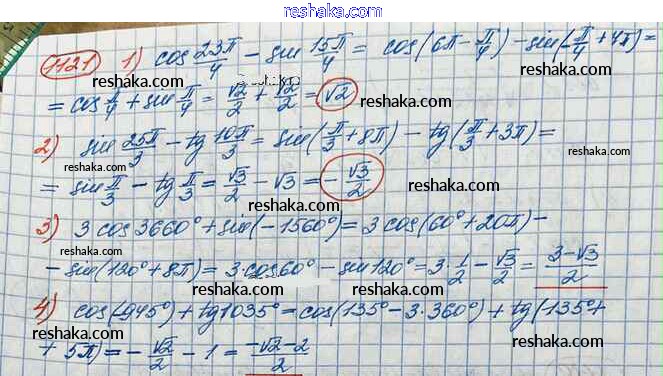 reshaka.com
1121 1) cos 23π/4 − sin 15π/4 = cos(6π − π/4) − sin(−π/4 + 4π) =
reshaka.com reshaka.com
= cos π/4 + sin π/4 = √2/2 + √2/2 = √2 reshaka.com reshaka.com
2) sin 25π/3 − tg 10π/3 = sin(π/3 + 8π) − tg(π/3 + 3π) =
reshaka.com reshaka.com reshaka.com
= sin π/3 − tg π/3 = √3/2 − √3 = −√3/2
reshaka.com reshaka.com
3) 3cos3660° + sin(−1560°) = 3cos(60° + 20π) −
reshaka.com reshaka.com reshaka.com
− sin(120° + 8π) = 3·cos60° − sin120° = 3·1/2 − √3/2 = 3−√3/2
4) cos(−945°) + tg1035° = cos(135° − 3·360°) + tg(−135° +
reshaka.com reshaka.com reshaka.com
+ 5π) = −√2/2 − 1 = −√2−2/2
reshaka.com reshaka.com